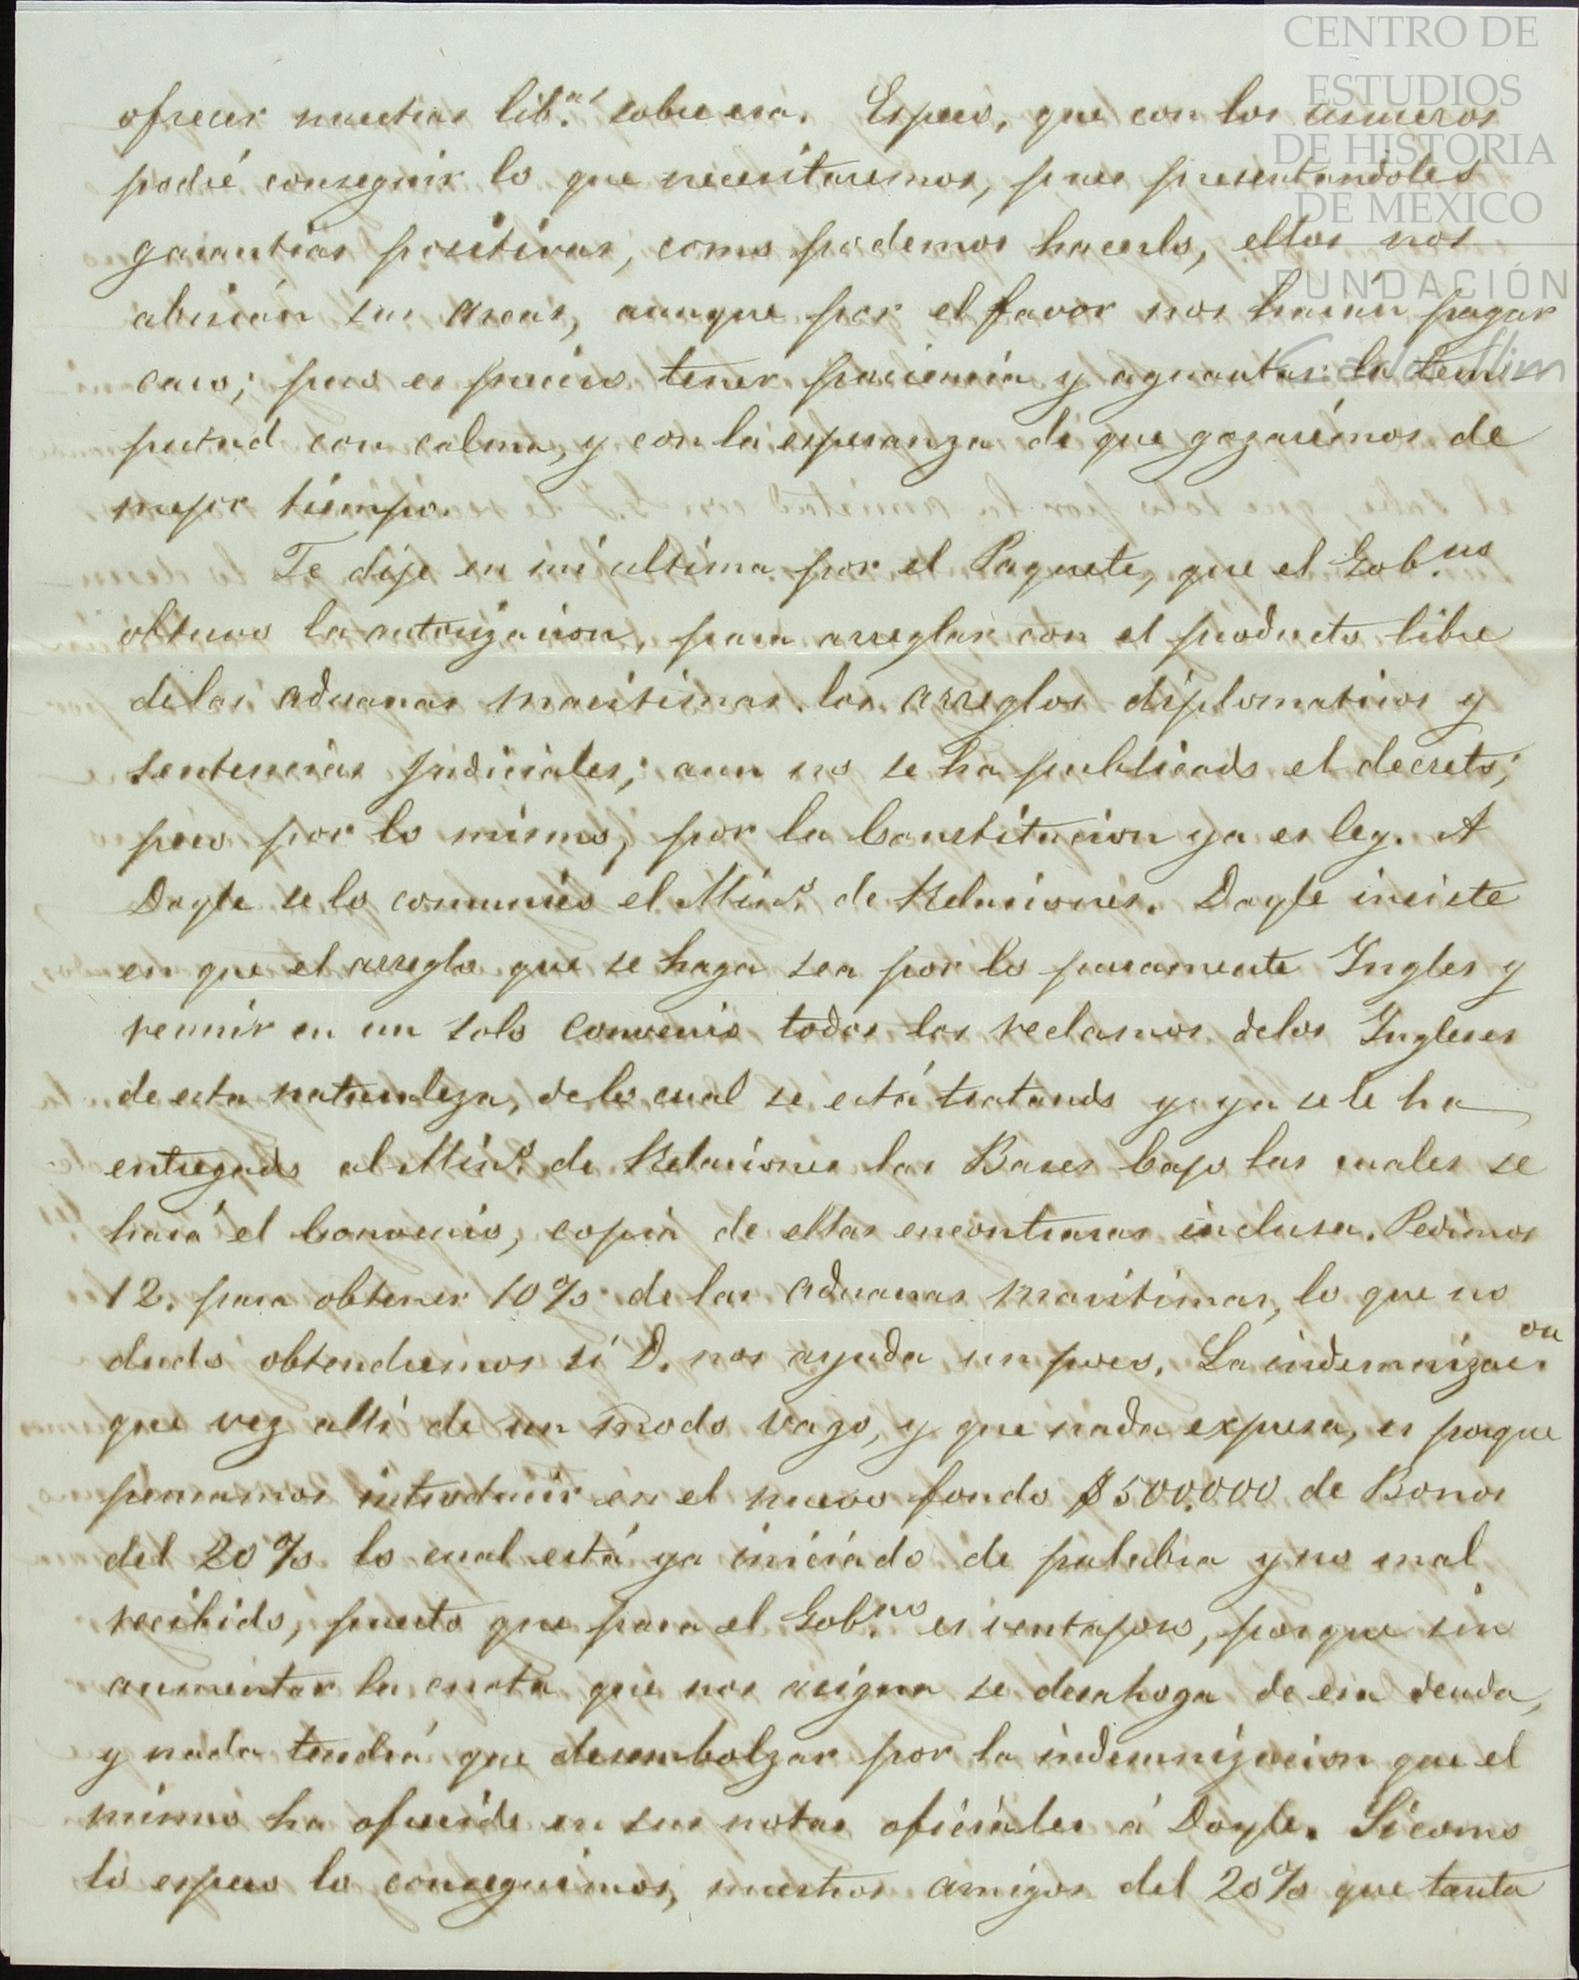 CENTRO DE
ESTUDIOS
DE HISTORIA
DE MEXICO
FUNDACIÓN
Carlos Slim
ofrecer nuestras lib.as sobre esa. Espero, que con los usureros
podré conseguir lo que necesitaremos, pues presentandoles
garantias positivas, como podemos hacerlo, ellos nos
abrirán sus arcas, aunque por el favor nos harán pagar
caro; pero es preciso tener paciencia y aguantar la tem
pestad con calma, y con la esperanza de que gozarémos de
mejor tiempo.
Te dije en mi ultima por el Paquete, que el Gob.no
obtuvo la autorizacion, para arreglar con el producto libre
delas aduanas maritimas los arreglos diplomaticos y
sentencias judiciales; aun no se ha publicado el decreto;
pero por lo mismo, por la Constitucion ya es ley. A
Doyle se lo comunico el Min.o de Relaciones. Doyle insiste
en que el arreglo que se haga sea por lo puramente Ingles y
reunir en un solo convenio todos los reclamos delos Ingleses
de esta naturaleza, delo cual se está tratando y ya se le ha
entregado al Min.o de Relaciones las Bases bajo las cuales se
hará el Convenio, copia de ellas encontraras inclusa. Pedimos
12. para obtener 10% de las aduanas maritimas, lo que no
dudo obtendremos si D. nos ayuda un poco. La indemnizac.on
que vez alli de un modo vago, y que nada expresa, es porque
pensamos introducir en el nuevo fondo $500.000 de Bonos
del 20% lo cual está ya iniciado de palabra y no mal
recibido, puesto que para el Gob.no es ventajoso, porque sin
aumentar la cuota que nos asigna se desahoga de esa deuda,
y nada tendrá que desembolzar por la indemnizacion que el
mismo ha ofrecido en sus notas oficiales á Doyle. Si como
lo espero lo conseguimos, nuestros amigos del 20% que tanta